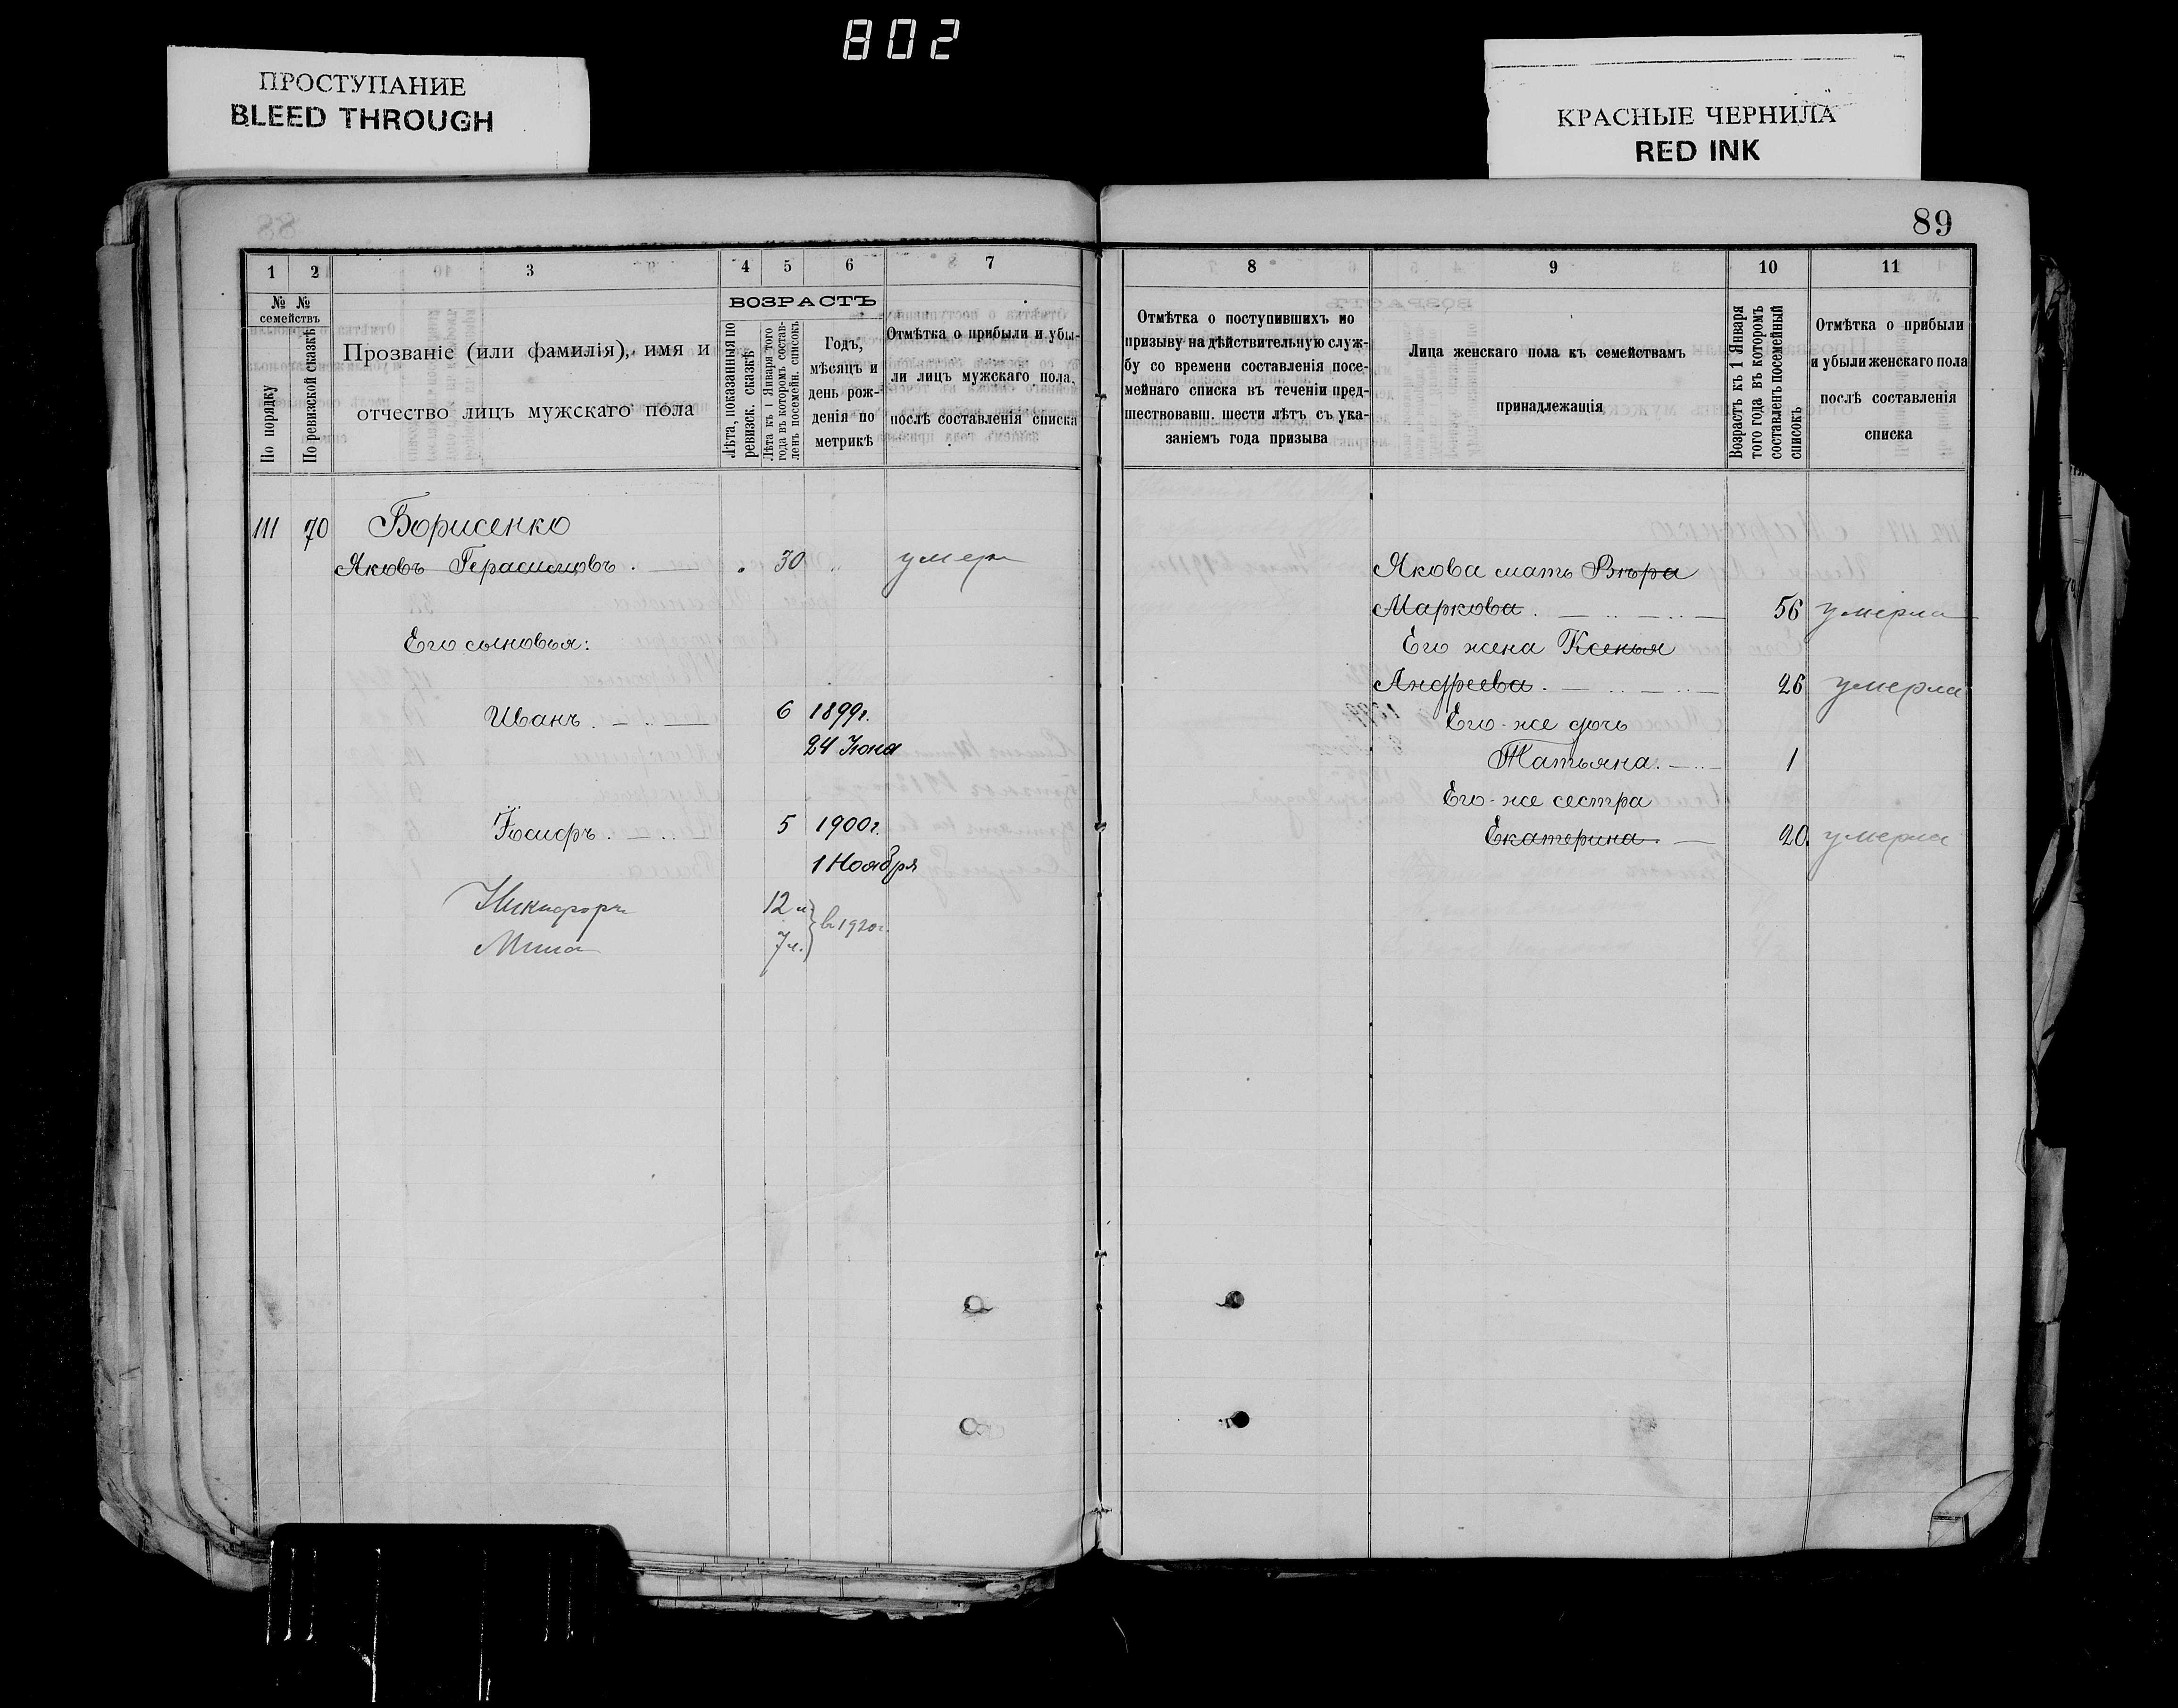 802
ПРОСТУПАНИЕ
BLEED THROUGH
КРАСНЫЕ ЧЕРНИЛА
RED INK
89
1 2 3 4 5 6 7
№ № семействъ
По порядку
По ревизской сказкѣ
Прозваніе (или фамилія), имя и
отчество лицъ мужскаго пола
ВОЗРАСТЪ
Лѣта, показанныя по
ревизск. сказкѣ
Лѣта къ 1 Января того
года въ которомъ состав-
ленъ посемейн. списокъ
Годъ,
мѣсяцъ и
день рож-
денія по
метрикѣ
Отмѣтка о прибыли и убы-
ли лицъ мужскаго пола,
послѣ составленія списка
111 70 Борисенко
Яковъ Герасимовъ. 30 умеръ
Его сыновья:
Иванъ. 6 1899г.
24 Іюня
Іосифъ. 5 1900г.
1 Ноября
Никифоръ 12 л. в 1920г.
Миша 7 л.
8 9 10 11
Отмѣтка о поступившихъ по
призыву на дѣйствительную служ-
бу со времени составленія посе-
мейнаго списка въ теченіи пред-
шествовавш. шести лѣтъ съ ука-
заніемъ года призыва
Лица женскаго пола къ семействамъ
принадлежащія
Возрастъ къ 1 Января
того года въ которомъ
составленъ посемейный
списокъ
Отмѣтка о прибыли
и убыли женскаго пола
послѣ составленія
списка
Якова мать Вѣра
Маркова. 56 умерла
Его жена Ксенья
Андреева. 26 умерла
Его-же дочь
Татьяна. 1
Его-же сестра
Екатерина. 20. умерла